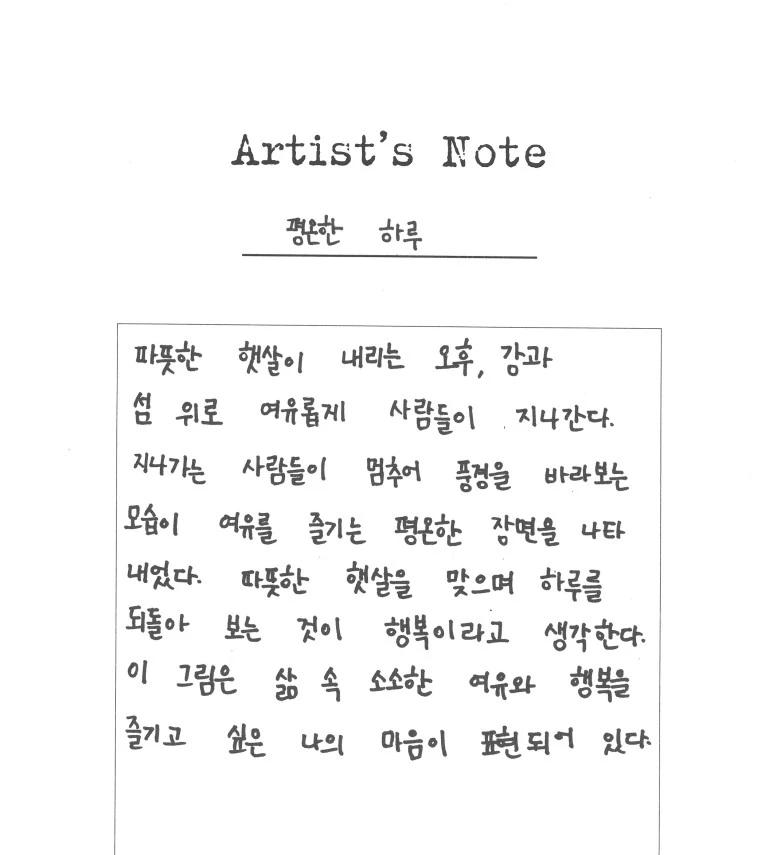 Artist's Note
평온한 하루
따뜻한 햇살이 내리는 오후, 강과
섬 위로 여유롭게 사람들이 지나간다.
지나가는 사람들이 멈추어 풍경을 바라보는
모습이 여유를 즐기는 평온한 장면을 나타
내었다. 따뜻한 햇살을 맞으며 하루를
되돌아 보는 것이 행복이라고 생각한다.
이 그림은 삶 속 소소한 여유와 행복을
즐기고 싶은 나의 마음이 표현되어 있다.